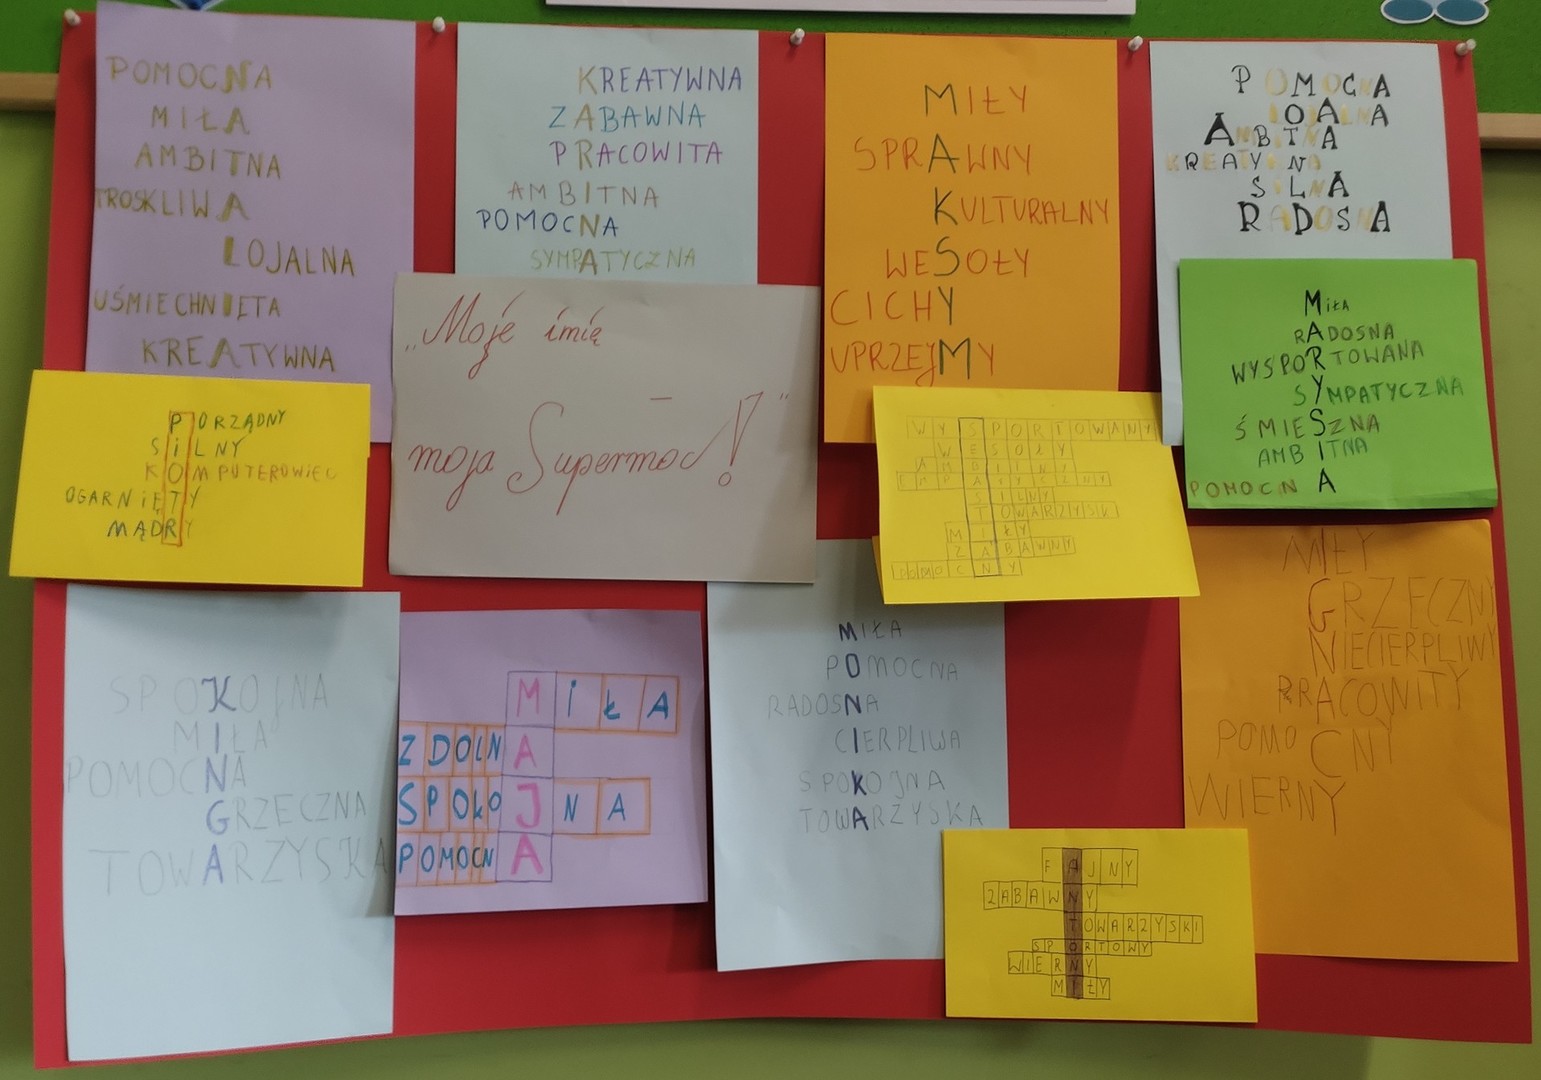 POMOCNA
MIŁA
AMBITNA
TROSKLIWA
LOJALNA
UŚMIECHNIĘTA
KREATYWNA
KREATYWNA
ZABAWNA
PRACOWITA
AMBITNA
POMOCNA
SYMPATYCZNA
MIŁY
SPRAWNY
KULTURALNY
WESOŁY
CICHY
UPRZEJMY
POMOCNA
LOJALNA
AMBITNA
KREATYWNA
SILNA
RADOSNA
„Moje imię
– moja Supermoc!"
MiŁA
RADOSNA
WYSPORTOWANA
SYMPATYCZNA
ŚMIESZNA
AMBITNA
POMOCNA
PORZĄDNY
SiLNY
KOMPUTEROWIEC
OGARNiĘTY
MĄDRY
WYSPORTOWANY
WESOŁY
AMBITNY
EMPATYCZNY
SILNY
TOWARZYSKI
MIŁY
ZABAWNY
POMOCNY
MIŁY
GRZECZNY
NIECIERPLIWY
PRACOWITY
POMOCNY
WIERNY
SPOKOJNA
MIŁA
POMOCNA
GRZECZNA
TOWARZYSKA
MiŁA
ZDOLNA
SPOKOJNA
POMOCNA
MIŁA
POMOCNA
RADOSNA
CIERPLIWA
SPOKOJNA
TOWARZYSKA
FAJNY
ZABAWNY
TOWARZYSKI
SPORTOWY
WIERNY
MIŁY